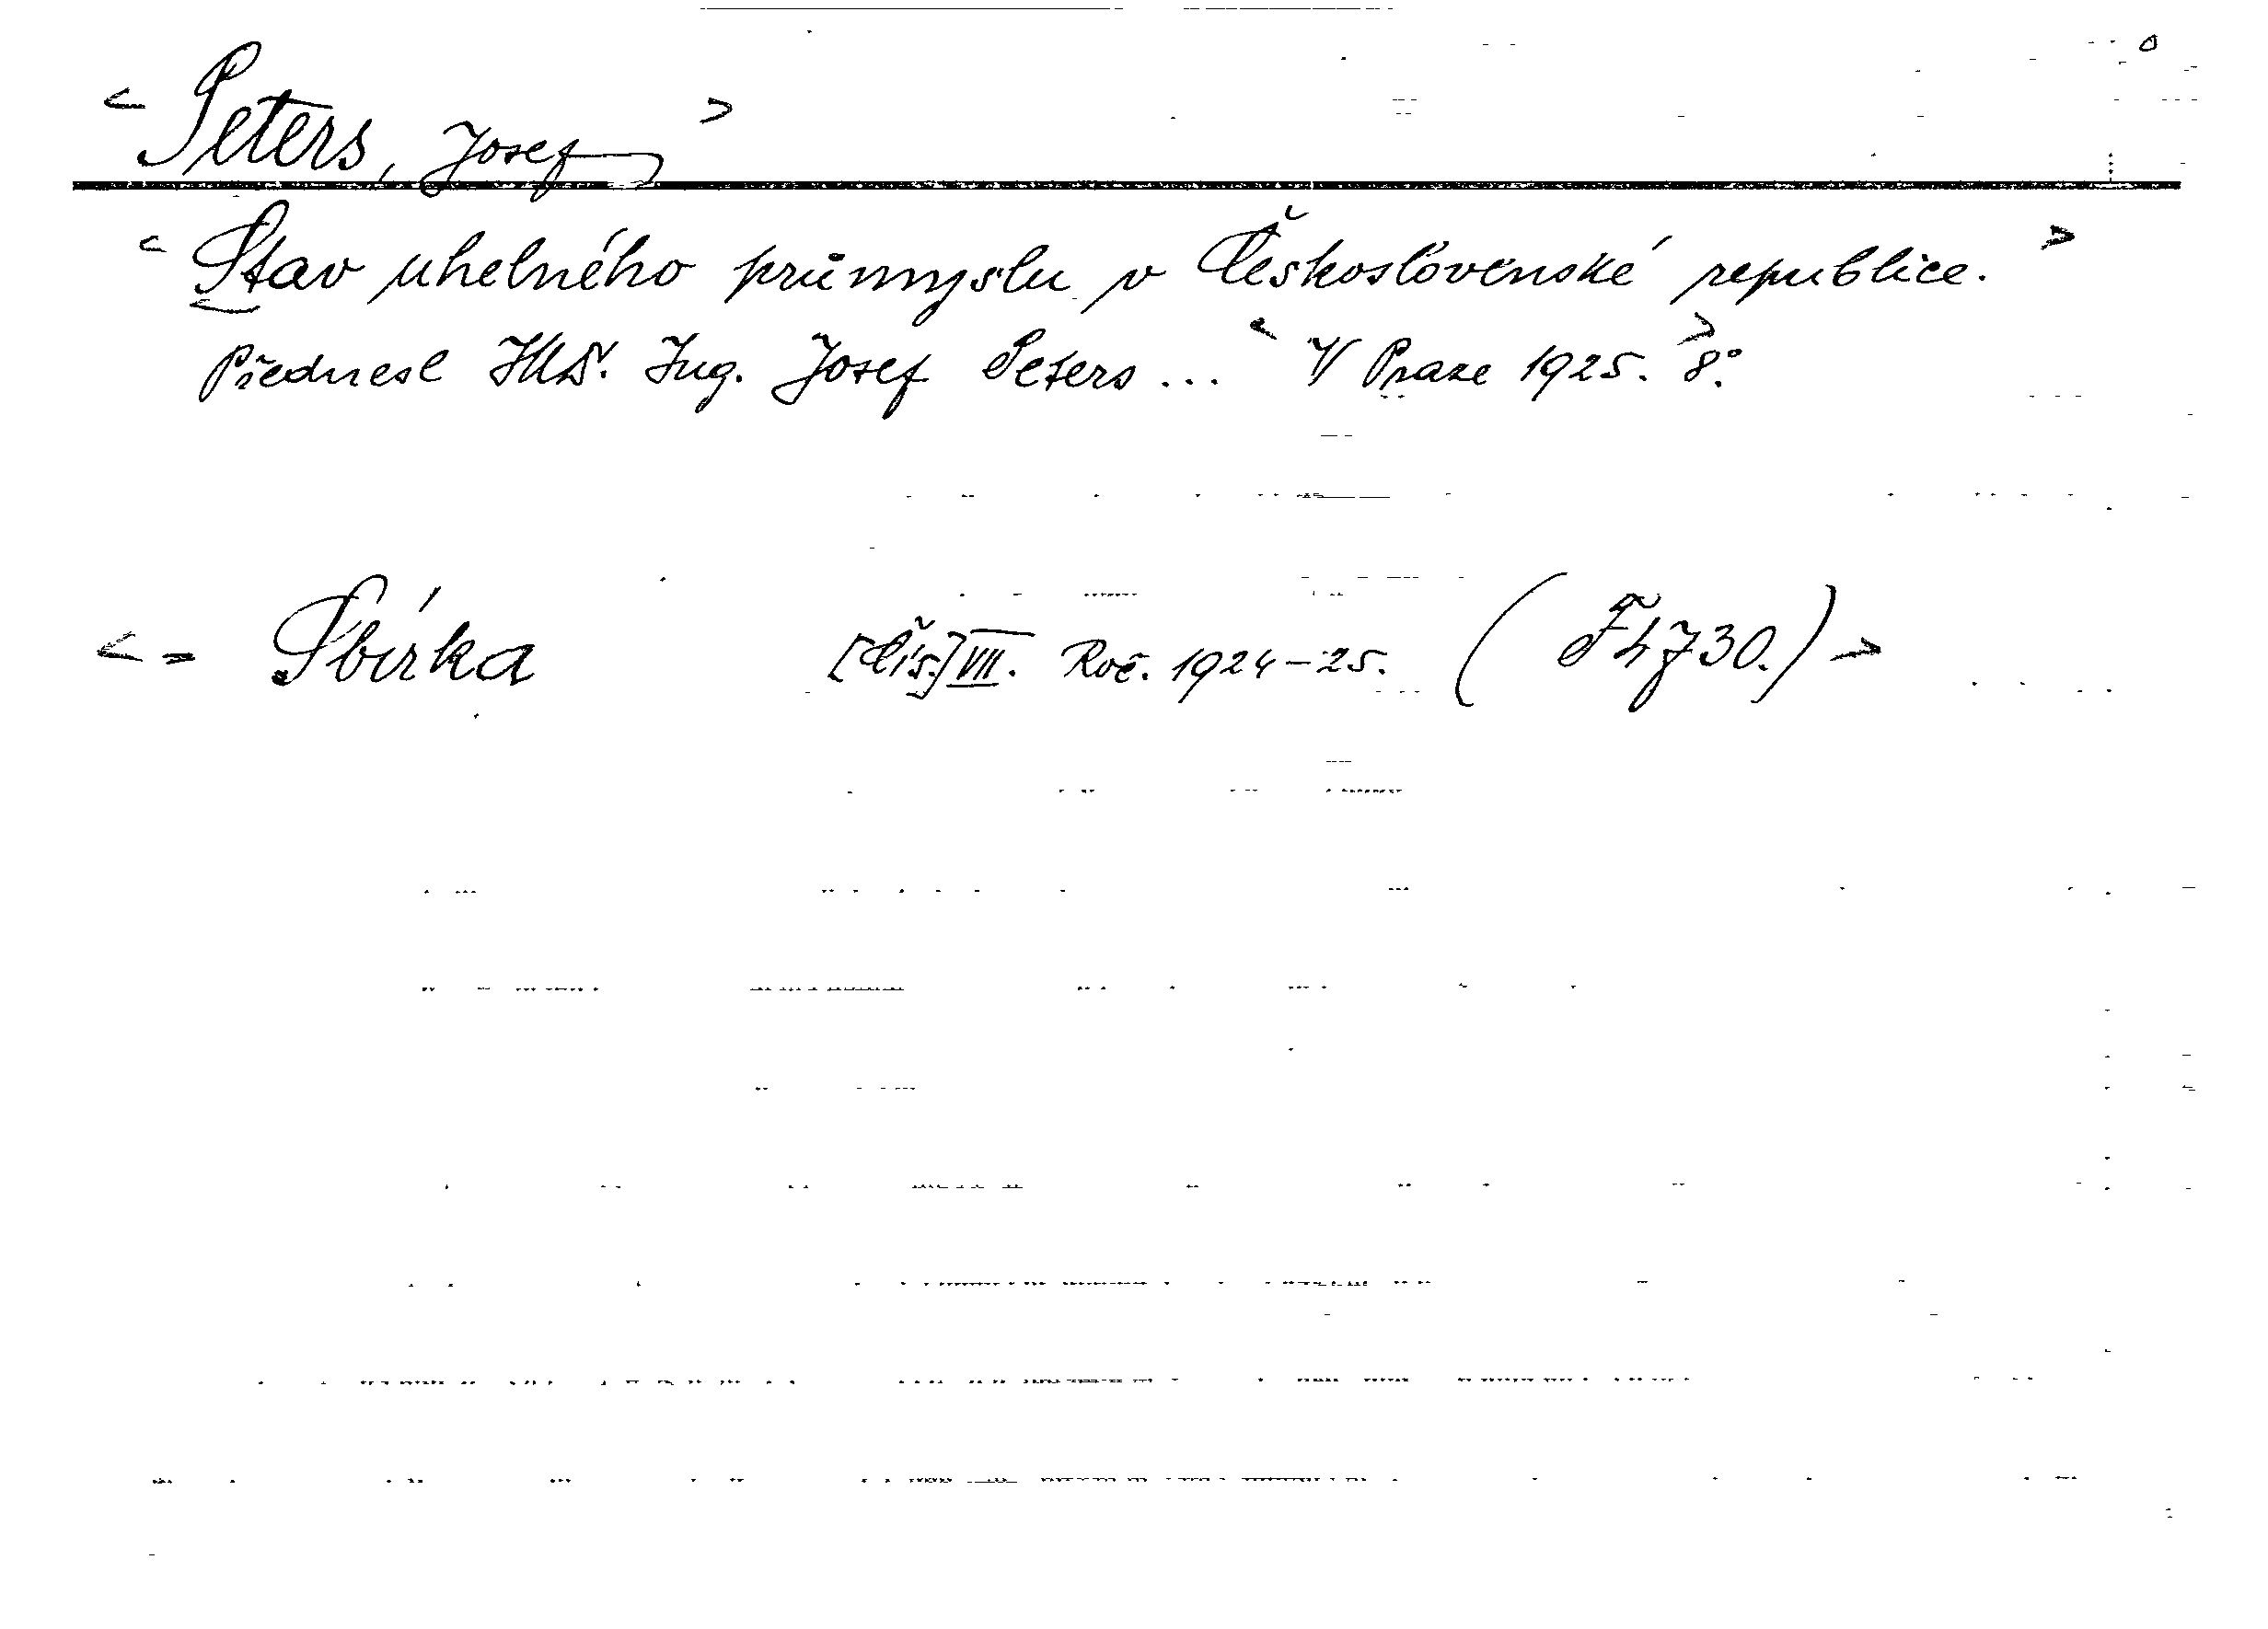 < Peters, Josef >
< Stav uhelného průmyslu v Československé republice. >
Přednesl JUDr. Ing. Josef Peters ... < V Praze 1925. > 8°.
< = Sbírka [Čís.] VII. Roč. 1924-25. (F 4730.) >